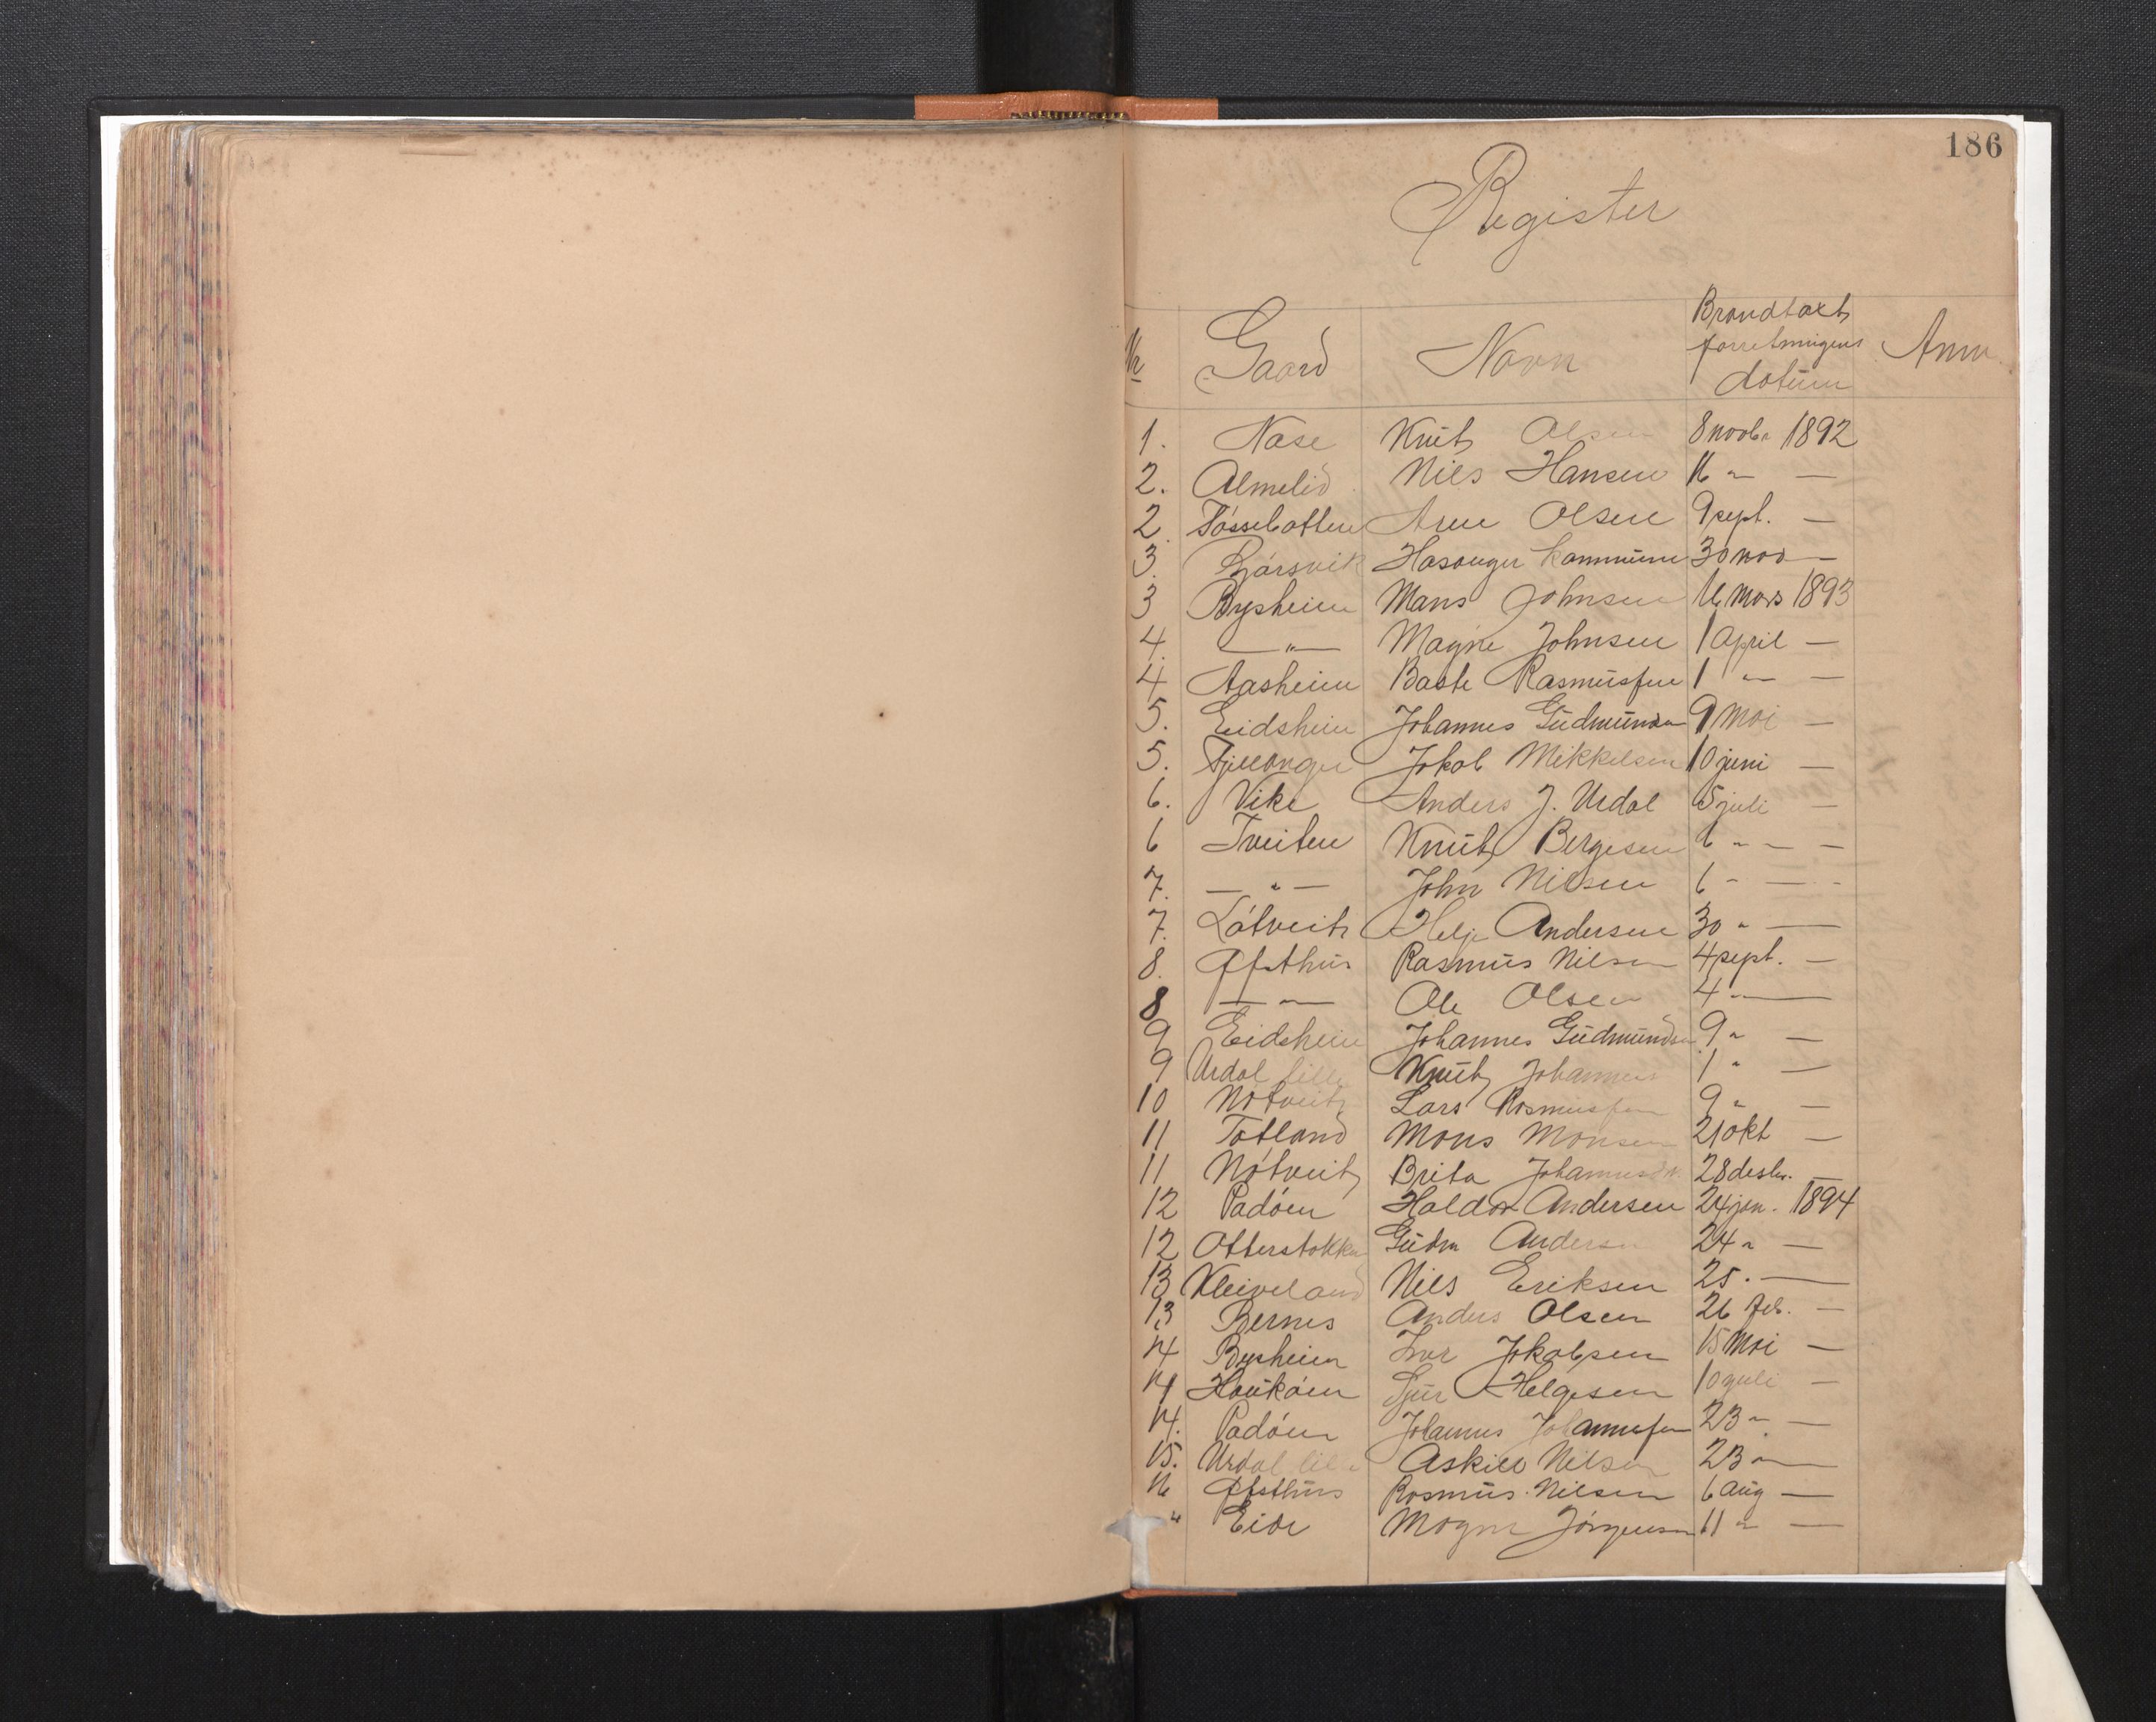 186
Register
Nr Gaard Navn Brandtaxt forretningens datum Anm.
1. Nase Knut Olsen 8 novbr 1892
2. Almelid Nils Hansen 16 " —
2. Fossebotten Arne Olsen 9 sept. —
3. Bjørsvik Hosanger kommune 30 nov —
3 Bysheim Mans Johnsen 16 mars 1893
4. —"— Magne Johnsen 1 April —
4. Aasheim Baste Rasmussen 1 " —
5. Eidsheim Johannes Gudmundsen 9 Mai —
5. Fjellanger Jakob Mikkelsen 10 juni —
6. Vike Anders J. Urdal 5 juli —
6 Tveiten Knut Bergesen 6 " — —
7. —"— John Nilsen 6 " — -
7. Løtveit Helje Andersen 30 " —
8. Øfsthus Rasmus Nilsen 4 sept. —
8 —"— Ole Olsen 4 " —
9 Eidsheim Johannes Gudmundsen 9 " —
9 Urdal lille Knut Johannes 1 " —
10 Nøtveit Lars Rasmussen 9 " —
11 Totland Mons Monsen 21 okt —
11 Nøtveit Brita Johannesdtr 28 desbr. —
12 Padøen Haldor Andersen 24 jan. 1894
12 Otterstakken Gudm Andersen 24 " —
13 Kleiveland Nils Eriksen 25. —
13 Bernes Anders Olsen 26 feb. —
14 Bysheim Iver Jakobsen 15 Mai —
14 Haukøen Sjur Helgesen 10 juli —
14. Padøen Johannes Johannesen 23 " —
15. Urdal lille Askill Nilsen 23 " —
16 Øfsthus Rasmus Nilsen 6 aug —
" Eide Mogne Jørgensen 11 " —